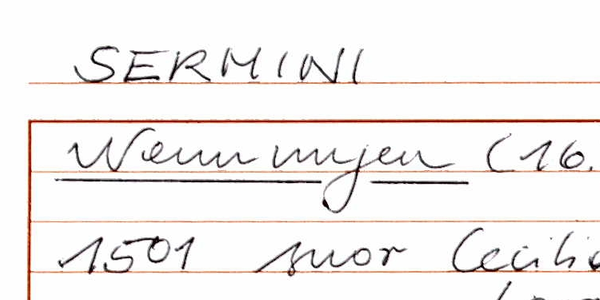 SERMINI
Wennungen (16.
1501 suor Cecilia